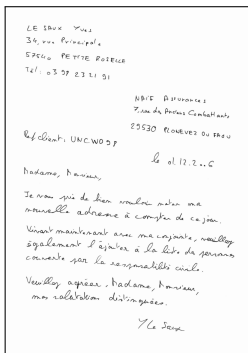 LE SAUX Yves
34, rue Principale
57540 PETITE ROSELLE
Tél : 03 97 23 21 91
NAIF Assurances
7, rue des Anciens Combattants
29530 PLONEVEZ DU FAOU
Ref client : UNCWO97
le 01.12.2006
Madame, Monsieur,
Je vous prie de bien vouloir noter ma
nouvelle adresse à compter de ce jour.
Vivant maintenant avec ma conjointe, veuillez
également l'ajouter à la liste de personnes
couverte par la responsabilité civile.
Veuillez agréer, Madame, Monsieur,
mes salutations distinguées.
Y Le Saux